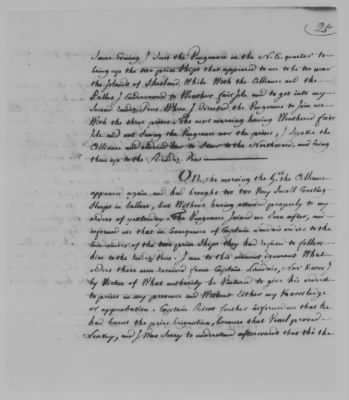 25
Same Evening, I Sent the Vengeance in the N. E. quarter to
bring up the two prize Ships that appeared to me to be too near
the Islands of Shetland. While With the Alliance and the
Pallas, I endeavoured to Weather fair Isle and to get into my
Second rendez Vous Where I directed the Vengeance to Join me
With the three prizes. The next morning having Weathered fair
Isle and not Seeing the Vengeance nor the prizes, I Spoke the
Alliance and ordered her to Steer to the Northward, and bring
them up to the Rendez Vous
On the morning the the Alliance
appeared again and had brought too two Very Small Coasting
Sloops in ballast, but Without having attended properly to my
orders of yesterday. The Vengeance Joined me Soon after, and
informed me that in Consequence of Captain Landais orders to the
Commanders of the two prize Ships they had refused to follow
him to the rendez Vous. I am to this moment ignorant What
orders these men received from Captain Landais, Nor know I
by Virtue of What authority he Ventured to give his orders
to prizes in my presence and Without Either my Knowledge
or approbation. Captain Ricot further informed me that he
had burnt the prize brigantine, because that Vessel proved
Leaky, and I Was Sorry to understand afterwards that tho' the